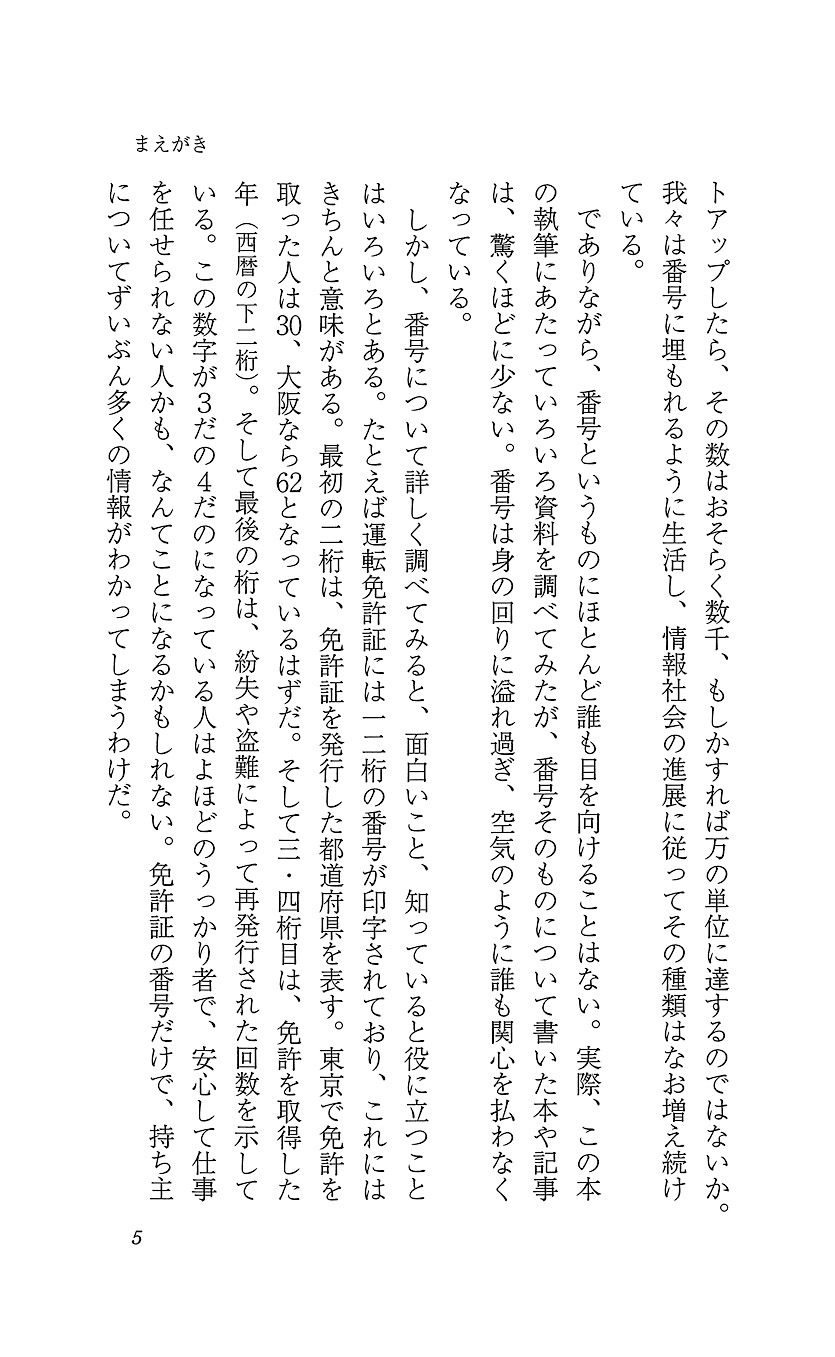 まえがき
トアップしたら、その数はおそらく数千、もしかすれば万の単位に達するのではないか。
我々は番号に埋もれるように生活し、情報社会の進展に従ってその種類はなお増え続け
ている。
でありながら、番号というものにほとんど誰も目を向けることはない。実際、この本
の執筆にあたっていろいろ資料を調べてみたが、番号そのものについて書いた本や記事
は、驚くほどに少ない。番号は身の回りに溢れ過ぎ、空気のように誰も関心を払わなく
なっている。
しかし、番号について詳しく調べてみると、面白いこと、知っていると役に立つこと
はいろいろとある。たとえば運転免許証には一二桁の番号が印字されており、これには
きちんと意味がある。最初の二桁は、免許証を発行した都道府県を表す。東京で免許を
取った人は30、大阪なら62となっているはずだ。そして三・四桁目は、免許を取得した
年（西暦の下二桁）。そして最後の桁は、紛失や盗難によって再発行された回数を示して
いる。この数字が3だの4だのになっている人はよほどのうっかり者で、安心して仕事
を任せられない人かも、なんてことになるかもしれない。免許証の番号だけで、持ち主
についてずいぶん多くの情報がわかってしまうわけだ。
5